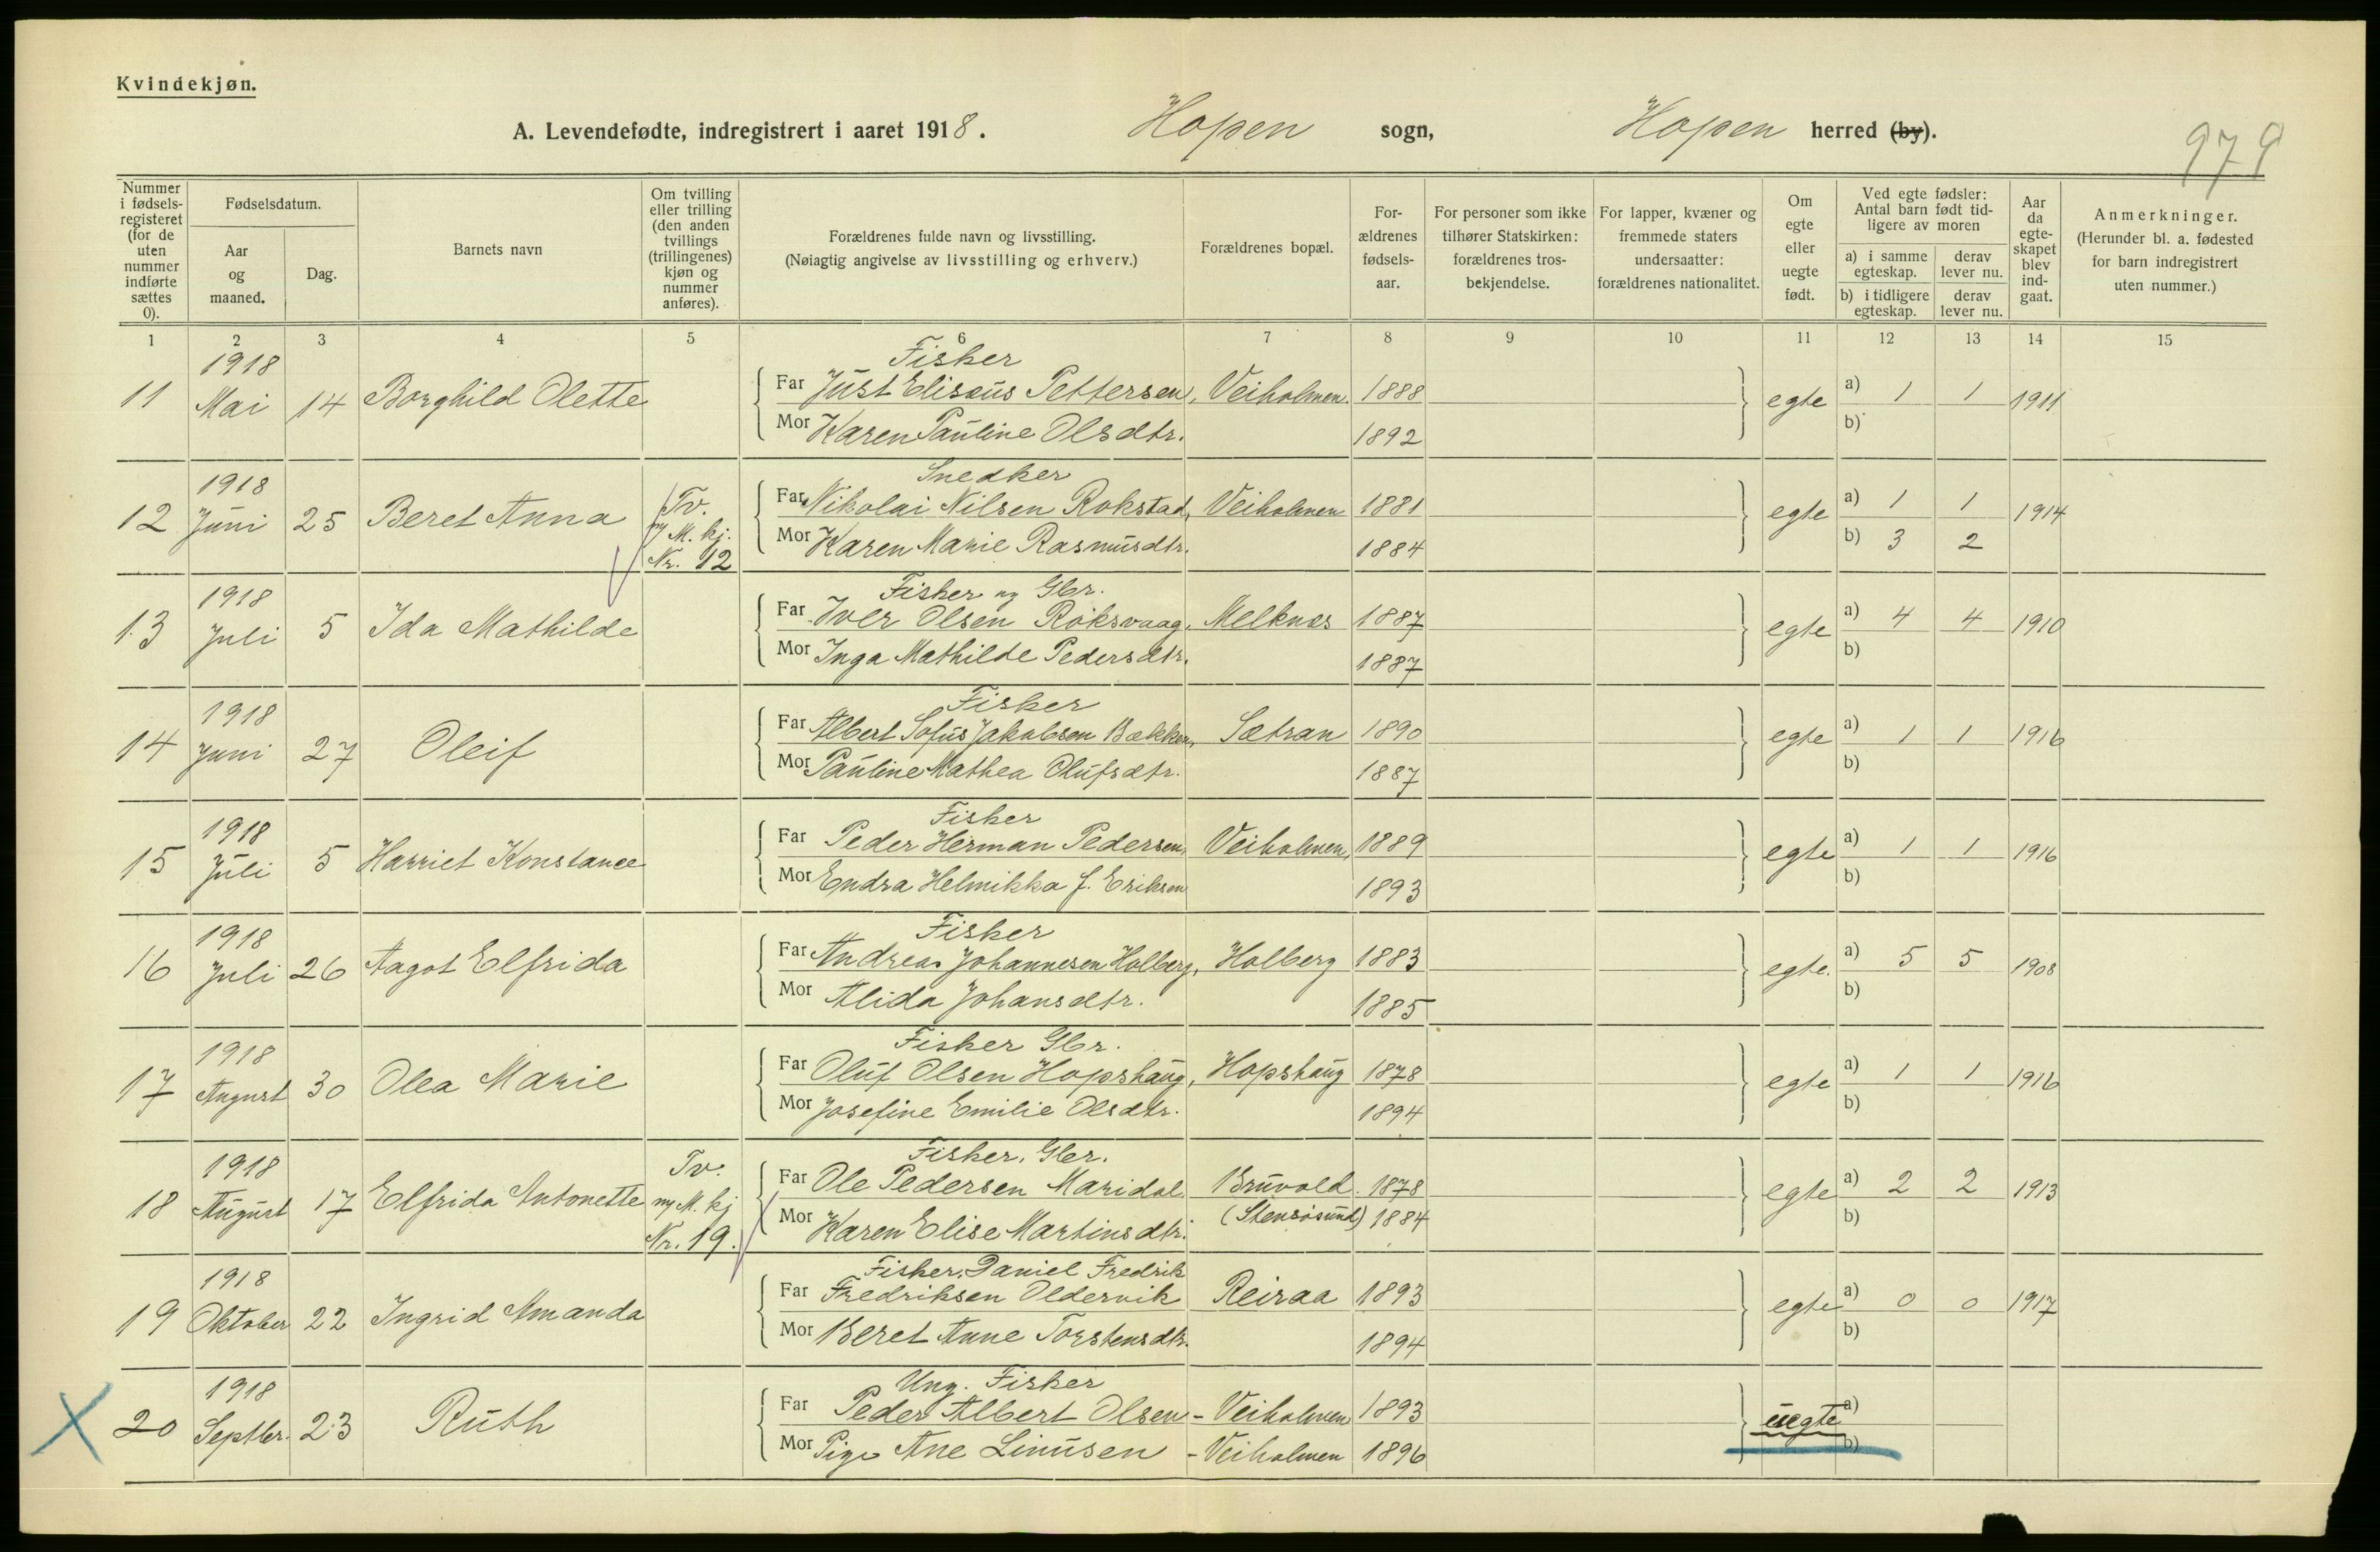 Kvindekjøn.
A. Levendefødte, indregistrert i aaret 1918. Hopen sogn, Hopen herred (by).
979
Nummer i fødsels-registeret (for de uten nummer indførte sættes 0).
Fødselsdatum.
Aar og maaned.
Dag.
Barnets navn
Om tvilling eller trilling (den anden tvillings (trillingenes) kjøn og nummer anføres).
Forældrenes fulde navn og livsstilling.
(Nøiagtig angivelse av livsstilling og erhverv.)
Forældrenes bopæl.
For-ældrenes fødsels-aar.
For personer som ikke tilhører Statskirken: forældrenes tros-bekjendelse.
For lapper, kvæner og fremmede staters undersaatter: forældrenes nationalitet.
Om egte eller uegte født.
Ved egte fødsler: Antal barn født tid-ligere av moren
a) i samme egteskap. derav lever nu.
b) i tidligere egteskap. derav lever nu.
Aar da egte-skapet blev ind-gaat.
Anmerkninger.
(Herunder bl. a. fødested for barn indregistrert uten nummer.)
1 2 3 4 5 6 7 8 9 10 11 12 13 14 15
1918 Fisker
11 Mai 14 Borghild Olette Far Just Elisæus Pettersen, Veiholmen. 1888 egte a) 1 1 1911
Mor Karen Pauline Olsdtr. 1892 b)
1918 Snedker
12 Juni 25 Beret Anna Tv. m M. kj. Nr. 12 Far Nikolai Nilsen Rokstad, Veiholmen 1881 egte a) 1 1 1914
Mor Karen Marie Rasmusdtr. 1884 b) 3 2
1918 Fisker og Gbr.
13 Juli 5 Ida Mathilde Far Iver Olsen Røksvaag, Melknes 1887 egte a) 4 4 1910
Mor Inga Mathilde Pedersdtr. 1887 b)
1918 Fisker
14 Juni 27 Oleif Far Albert Sofus Jakobsen Bækken, Sætran 1890 egte a) 1 1 1916
Mor Pauline Mathea Olufsdtr. 1887 b)
1918 Fisker
15 Juli 5 Harriet Konstance Far Peder Herman Pedersen, Veiholmen, 1889 egte a) 1 1 1916
Mor Endra Helmikka f. Eriksen 1893 b)
1918 Fisker
16 Juli 26 Aagot Elfrida Far Andreas Johannesen Holberg, Holberg 1883 egte. a) 5 5 1908
Mor Alida Johansdtr. 1885 b)
1918 Fisker Gbr.
17 August 30 Olea Marie Far Oluf Olsen Hopshaug, Hopshaug 1878 egte a) 1 1 1916
Mor Josefine Emilie Olsdtr. 1894 b)
1918 Fisker. Gbr.
18 August 17 Elfrida Antonette Tv. m M. kj Nr. 19. Far Ole Pedersen Maridal Bruvold 1878 egte a) 2 2 1913
Mor Karen Elise Martinsdtr. (Stensøsund) 1884 b)
1918 Fisker, Daniel Fredrik
19 Oktober 22 Ingrid Amanda Far Fredriksen Oldervik Reiraa 1893 egte a) 0 0 1917
Mor Beret Anne Torstensdtr. 1894 b)
1918 Ung. Fisker
20 Septbr. 23 Ruth Far Peder Albert Olsen - Veiholmen 1893 uegte a)
Mor Pige Ane Linusen - Veiholmen 1896 b)